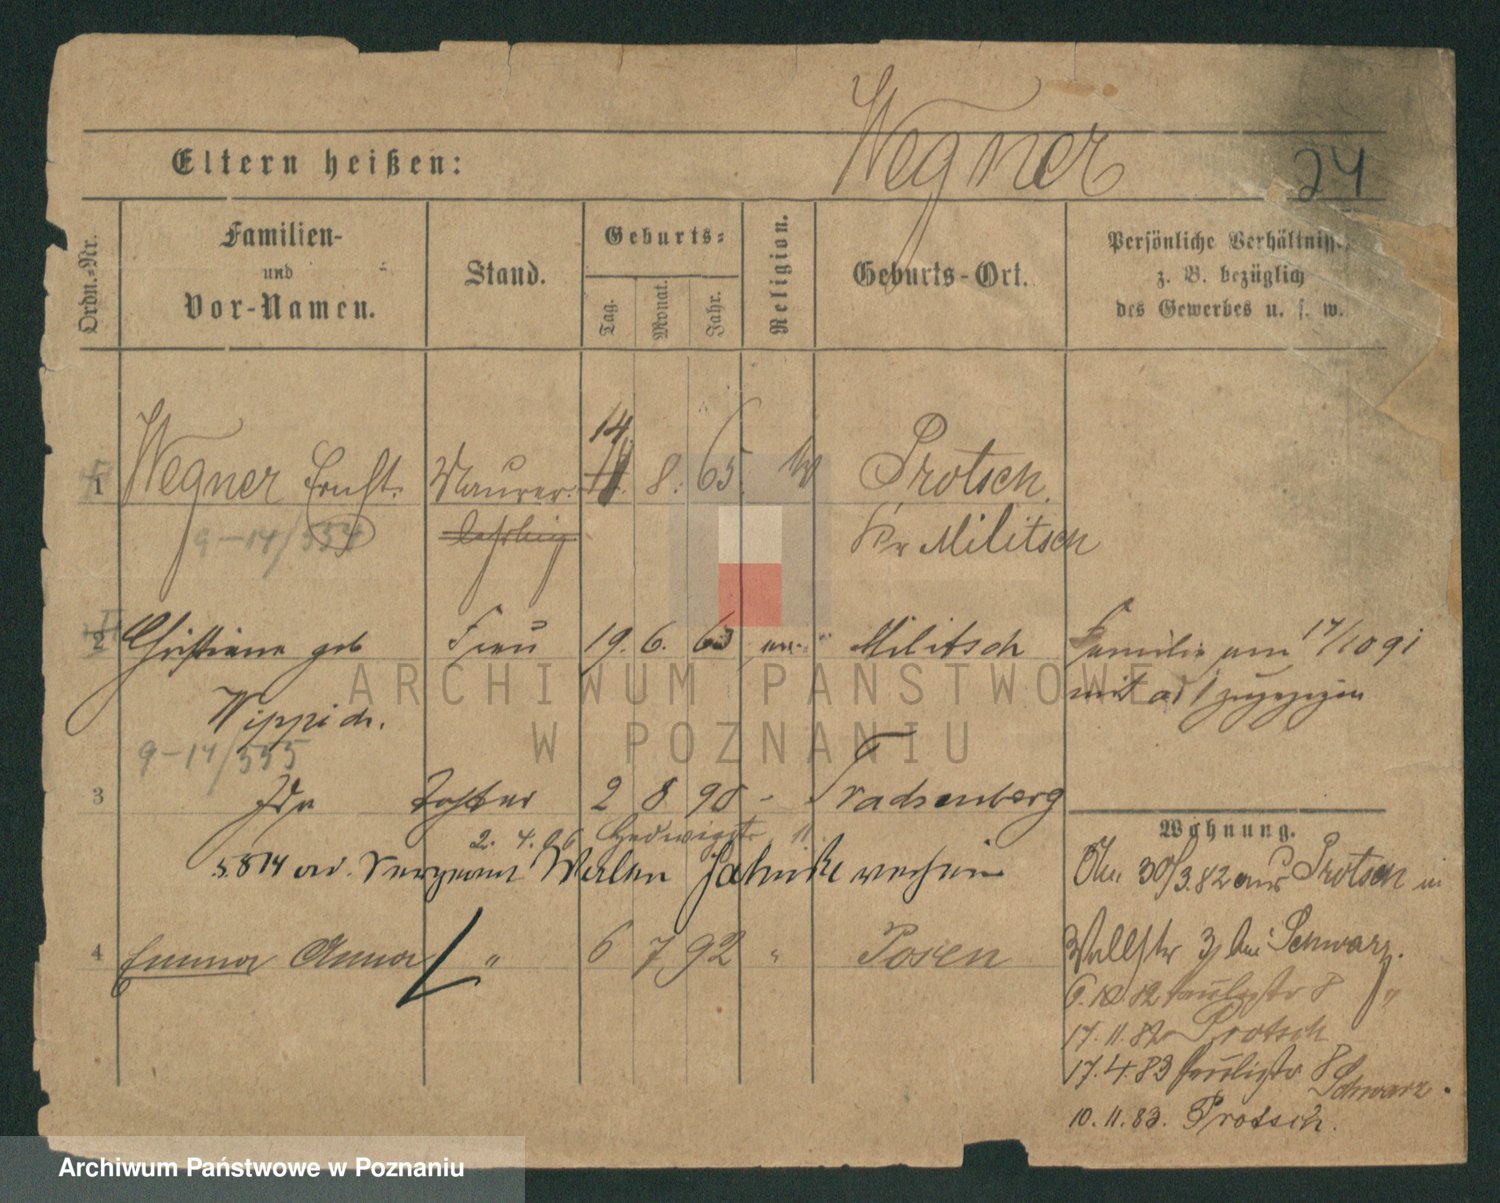 Wegner
24
Eltern heißen:
Ordn.-Nr.
Familien- und Vor-Namen.
Stand.
Geburts-
Tag.
Monat.
Jahr.
Religion.
Geburts-Ort.
Persönliche Verhältnisse
z. B. bezüglich
des Gewerbes u. s. w.
14
1 Wegner Ernst. Maurer. 8. 65. Protsch.
9-14/554 Kr Militsch
2 Christiane geb Frau 19. 6. 63 ev. " Militsch Familie am 17/10 91
mit zugezogen
9-14/555
3 Ida Tochter 2 8 90 - Trachenberg
2. 4. 06 Hedwigstr 11.
5814
Wohnung.
30/3.82 aus Protsch in
4 Emma Anna " 6 7 92 " Posen
3 bei Schwarz.
6.10.82 Paulistr 8 "
17.11.82 Protsch
17.4.83 Paulistr 8 Schwarz.
10.11.83. Protsch.
ARCHIWUM PAŃSTWOWE
W POZNANIU
Archiwum Państwowe w Poznaniu